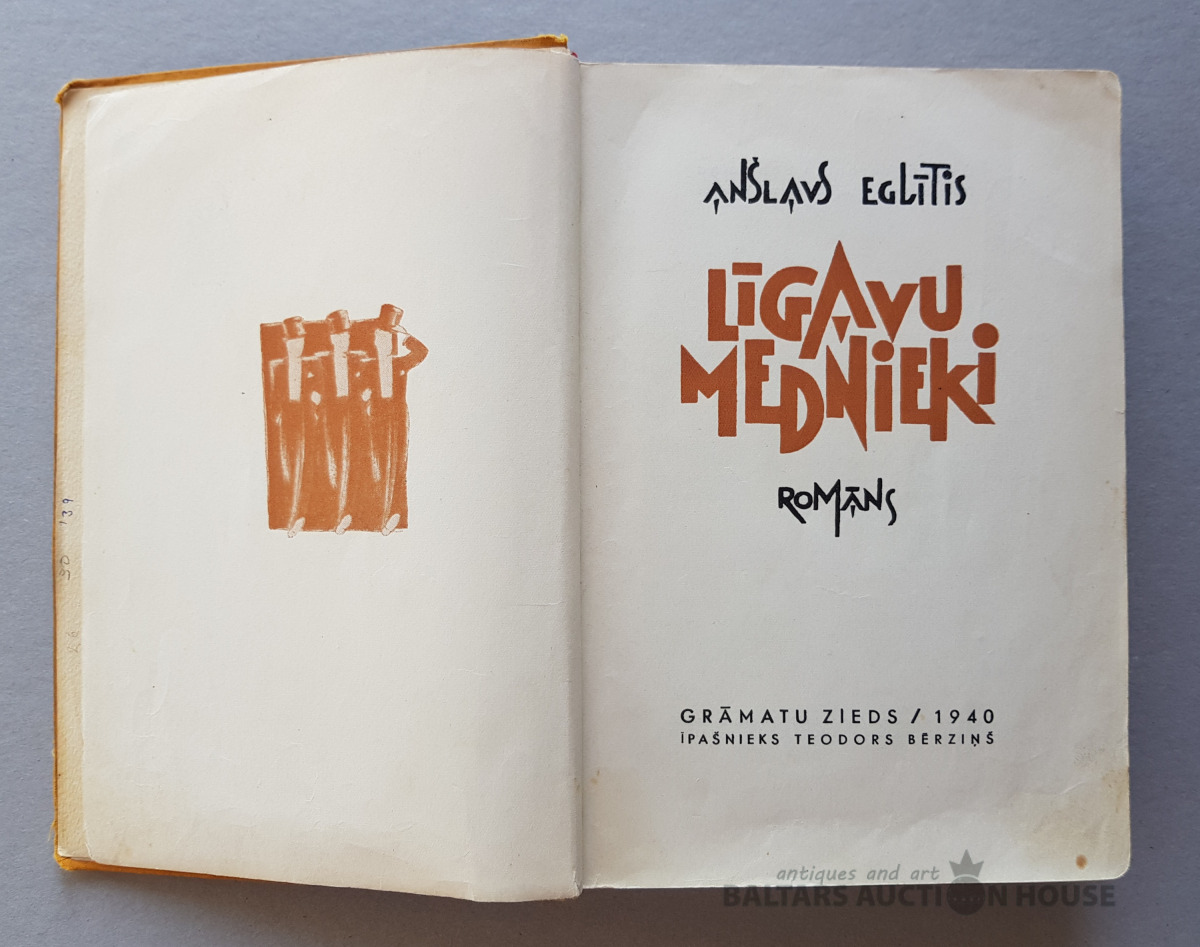 ANŠLAVS EGLĪTIS
LĪGAVU
MEDNIEKI
ROMĀNS
GRĀMATU ZIEDS / 1940
ĪPAŠNIEKS TEODORS BĒRZIŅŠ
'39
antiques and art
BALTARS AUCTION HOUSE